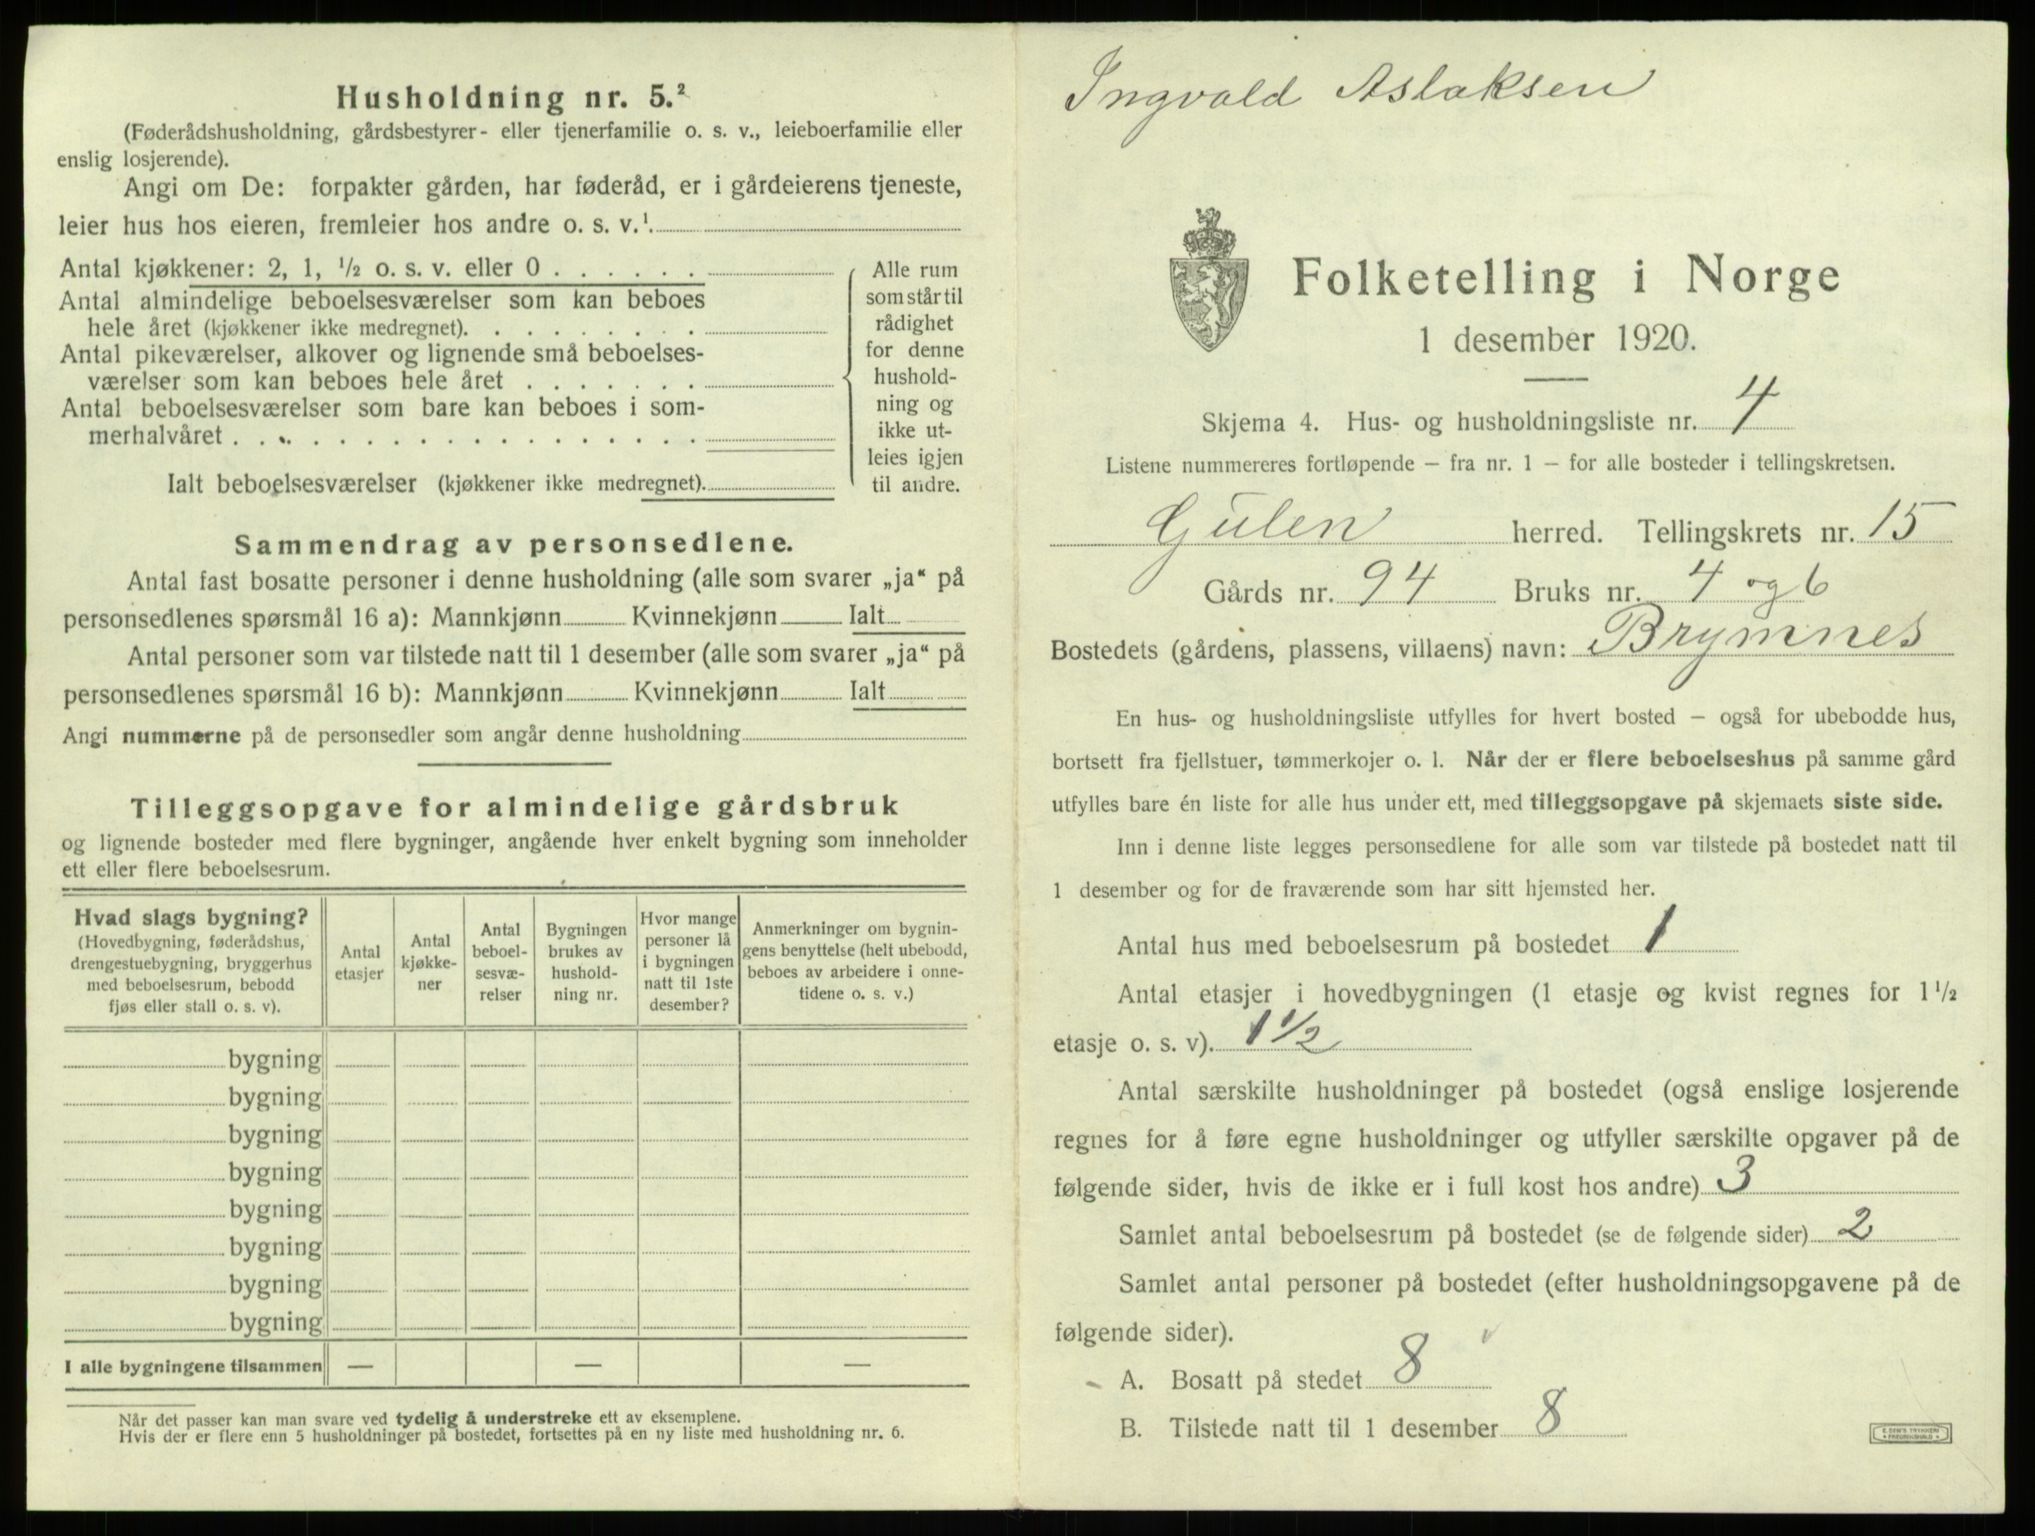 Husholdning nr. 5.²
(Føderådshusholdning, gårdsbestyrer- eller tjenerfamilie o. s. v., leieboerfamilie eller
enslig losjerende).
Angi om De: forpakter gården, har føderåd, er i gårdeierens tjeneste,
leier hus hos eieren, fremleier hos andre o. s. v.¹
Antal kjøkkener: 2, 1, ½ o. s. v. eller 0 . . . . . .
Antal almindelige beboelsesværelser som kan beboes
hele året (kjøkkener ikke medregnet). . . . . . . . .
Antal pikeværelser, alkover og lignende små beboelses-
værelser som kan beboes hele året . . . . . . .
Antal beboelsesværelser som bare kan beboes i som-
merhalvåret . . . . . . . . . . . . . . . . . .
Ialt beboelsesværelser (kjøkkener ikke medregnet).
Alle rum
som står til
rådighet
for denne
hushold-
ning og
ikke ut-
leies igjen
til andre.
Sammendrag av personsedlene.
Antal fast bosatte personer i denne husholdning (alle som svarer „ja“ på
personsedlenes spørsmål 16 a): Mannkjønn Kvinnekjønn Ialt
Antal personer som var tilstede natt til 1 desember (alle som svarer „ja“ på
personsedlenes spørsmål 16 b): Mannkjønn Kvinnekjønn Ialt
Angi nummerne på de personsedler som angår denne husholdning
Tilleggsopgave for almindelige gårdsbruk
og lignende bosteder med flere bygninger, angående hver enkelt bygning som inneholder
ett eller flere beboelsesrum.
Hvad slags bygning?
(Hovedbygning, føderådshus,
drengestuebygning, bryggerhus
med beboelsesrum, bebodd
fjøs eller stall o. s. v).
Antal
etasjer
Antal
kjøkke-
ner
Antal
beboel-
sesvæ-
relser
Bygningen
brukes av
hushold-
ning nr.
Hvor mange
personer lå
i bygningen
natt til 1ste
desember?
Anmerkninger om bygnin-
gens benyttelse (helt ubebodd,
beboes av arbeidere i onne-
tidene o. s. v.)
bygning
bygning
bygning
bygning
bygning
bygning
bygning
bygning
I alle bygningene tilsammen — — —
Når det passer kan man svare ved tydelig å understreke ett av eksemplene.
Hvis der er flere enn 5 husholdninger på bostedet, fortsettes på en ny liste med husholdning nr. 6.
Ingvald Aslaksen
Folketelling i Norge
1 desember 1920.
Skjema 4. Hus- og husholdningsliste nr. 4
Listene nummereres fortløpende – fra nr. 1 – for alle bosteder i tellingskretsen.
Gulen herred. Tellingskrets nr. 15
Gårds nr. 94 Bruks nr. 4 og 6
Bostedets (gårdens, plassens, villaens) navn: Brymnes
En hus- og husholdningsliste utfylles for hvert bosted – også for ubebodde hus,
bortsett fra fjellstuer, tømmerkojer o. l. Når der er flere beboelseshus på samme gård
utfylles bare én liste for alle hus under ett, med tilleggsopgave på skjemaets siste side.
Inn i denne liste legges personsedlene for alle som var tilstede på bostedet natt til
1 desember og for de fraværende som har sitt hjemsted her.
Antal hus med beboelsesrum på bostedet 1
Antal etasjer i hovedbygningen (1 etasje og kvist regnes for 1½
etasje o. s. v). 1½
Antal særskilte husholdninger på bostedet (også enslige losjerende
regnes for å føre egne husholdninger og utfyller særskilte opgaver på de
følgende sider, hvis de ikke er i full kost hos andre) 3
Samlet antal beboelsesrum på bostedet (se de følgende sider) 2
Samlet antal personer på bostedet (efter husholdningsopgavene på de
følgende sider).
A. Bosatt på stedet 8
B. Tilstede natt til 1 desember 8